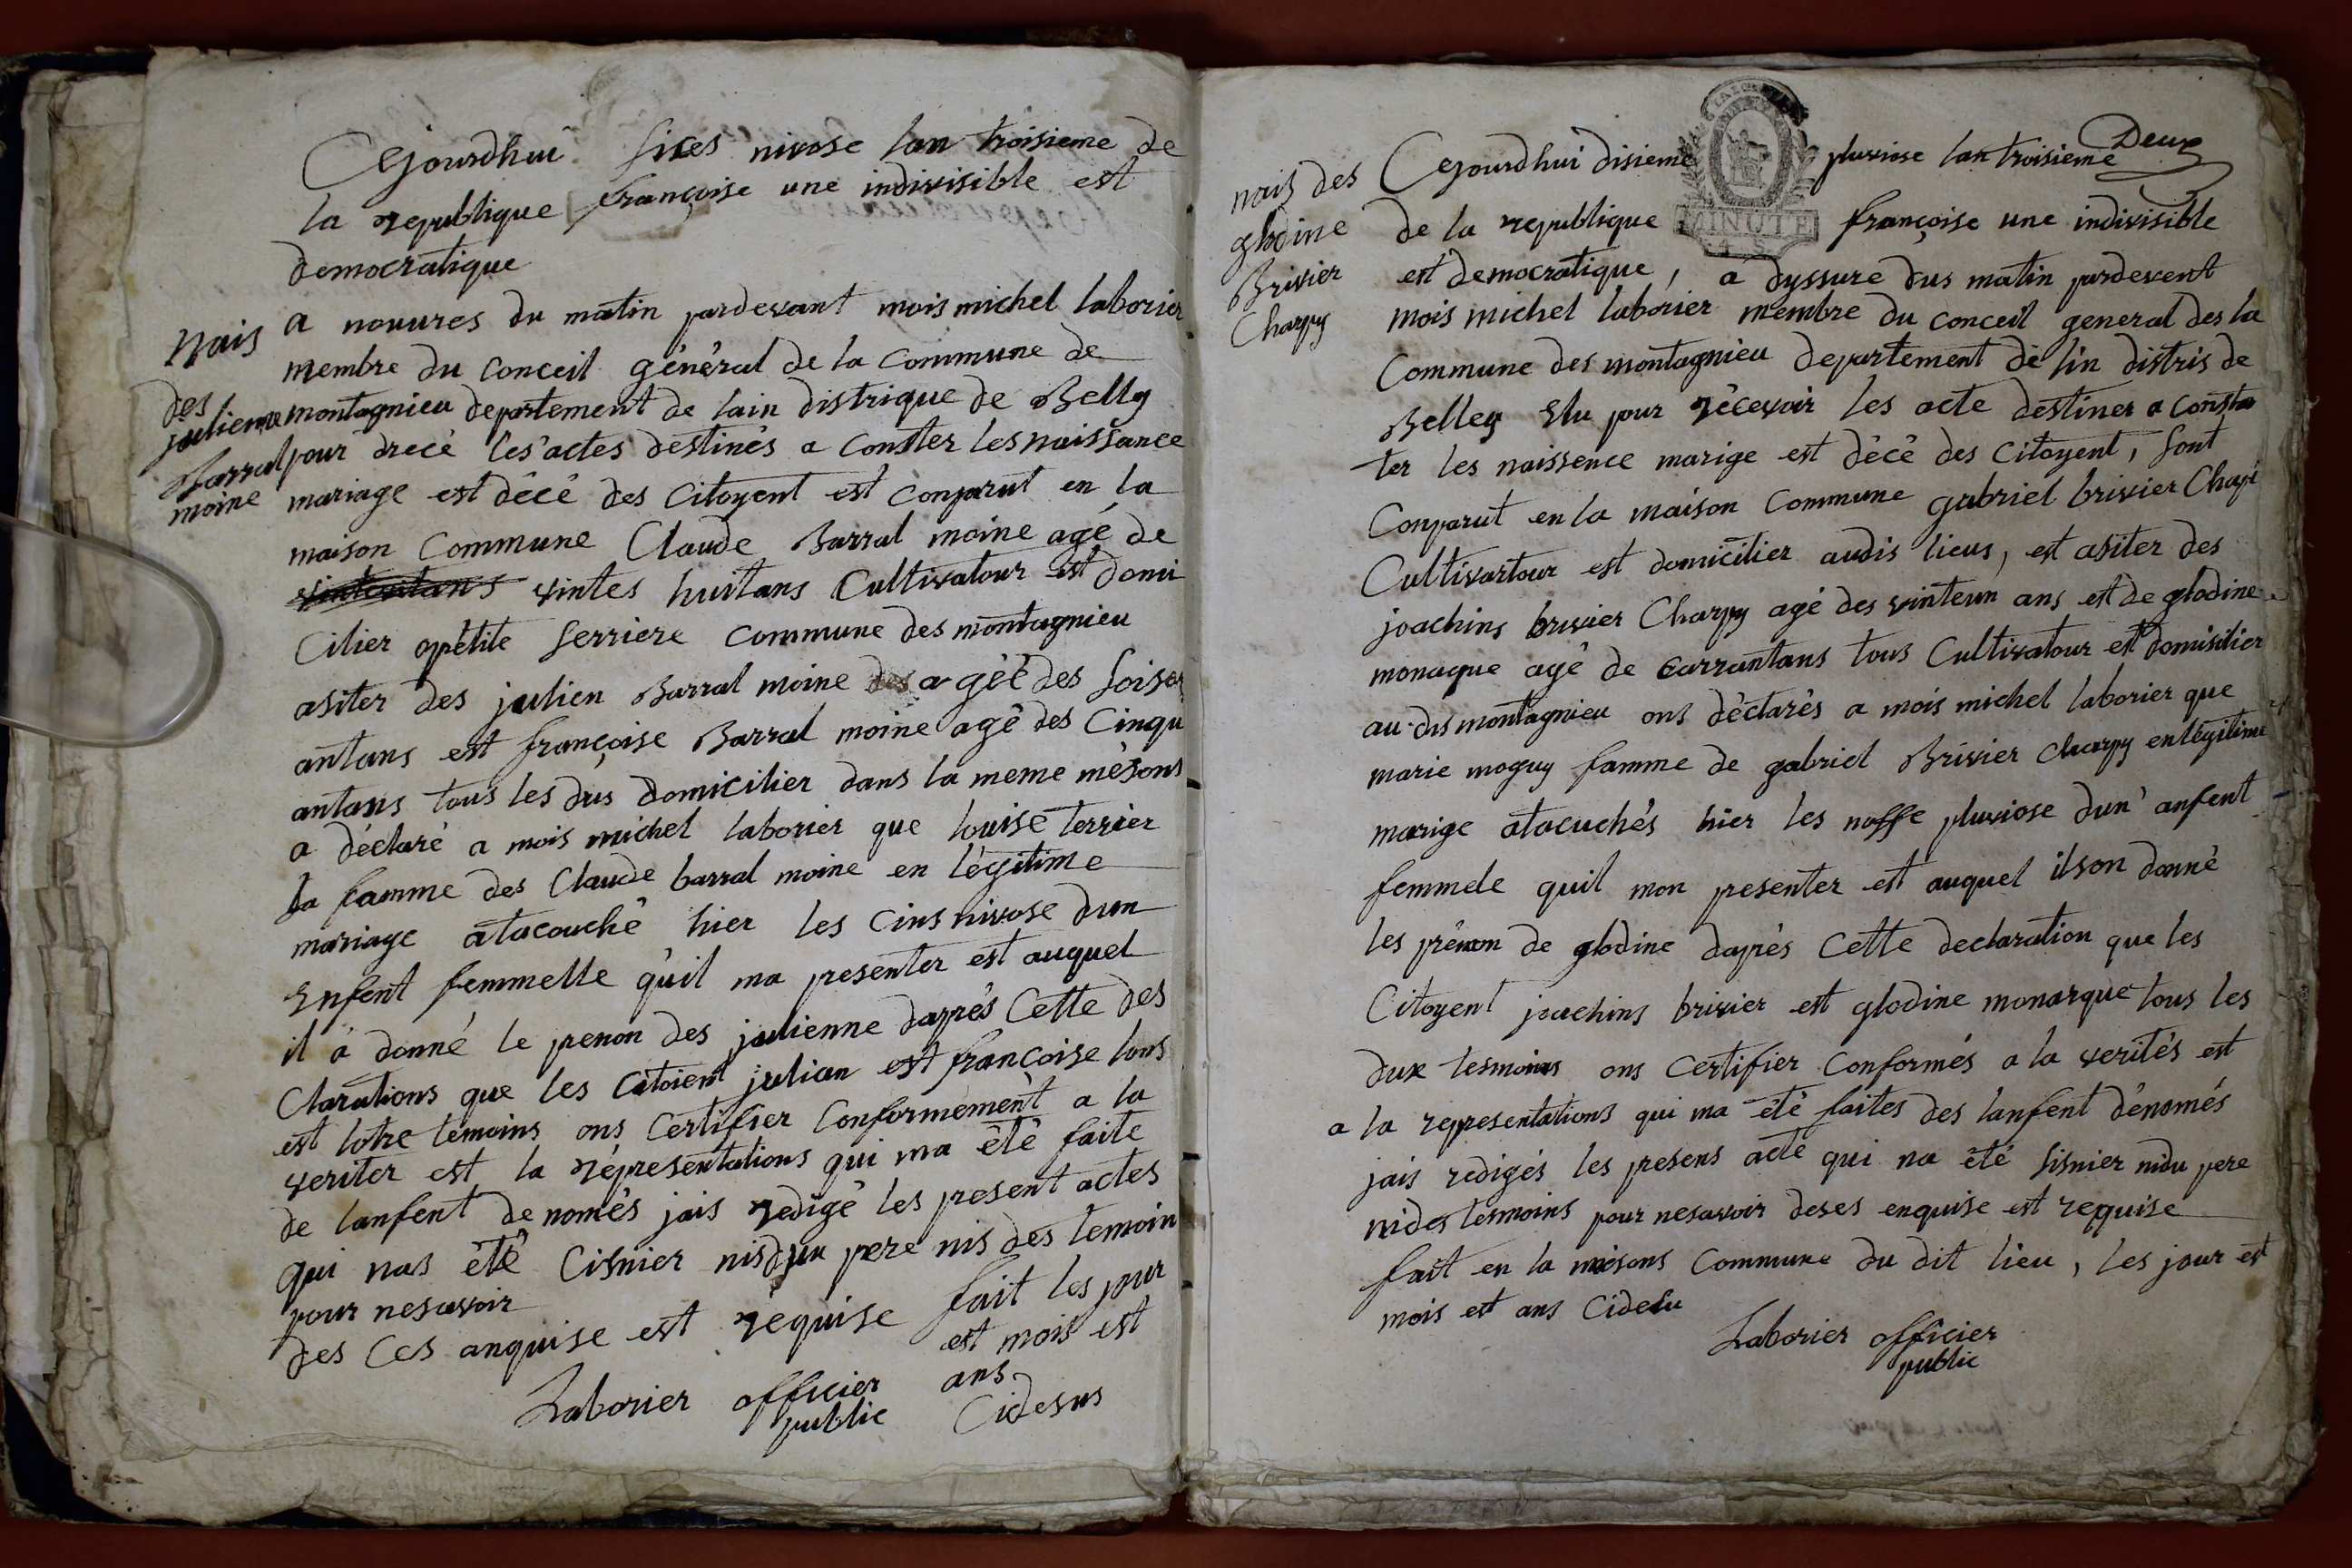 Cejourdhui sices nivose lan troisieme de
la republique françoise une indivisible est
democratique
nais
des
julienne
Barral
moine
a nouures du matin pardevant mois michel laborier
membre du conceil général de la commune de
montagnieu departement de lain distrique de Belley
pour drecé les actes destinés a conster les naissance
mariage est décé des Citoyent est conparut en la
maison Commune Claude Barral moine agé de
vintes huitans Cultivatour est domi
Cilier apétite Serriere commune des montagnieu
asiter des julien Barral moine agéé des soisen
antans est françoise Barral moine agé des Cinqu
antans tous les dus domicilier dans la meme mésons
a déclaré a mois michel laborier que louise terrier
la famme des Claude barral moine en légitime
mariage atacouché hier les cins nivose dun
Enfent femmelle quil ma presenter est auquel
il a donné le prenon des julienne daprés Cette des
Clarations que les Citoient julien est françoise tous
est lotre temoins ons Certifier Conformement a la
veriter est la réprésentations qui ma été faite
de lanfent denomés jais redigé les present actes
qui nas été Cisnier nisdju pere nis des temoin
pour nesavoir
des Ces anquise est requise fait les jour
est mois est
ans
Cidesus
Laborier officier
public
Deux
nais des
glodine
Brivier
Charpy
Cejourdhui disieme pluviose lan troisieme
MINUTE
de la republique françoise une indivisible
est democratique, a dyssure dus matin pardevent
mois michel laborier membre du conceil general des la
Commune des montagnieu departement de lin distris de
Belley Elu pour récevoir les acte destiner a consta
ter les naissence marige est décé des Citoyent, sont
Conparut en la maison Commune gabriel brivier Chapé
Cultivartour est domicilier audis lieus, est asiter des
joachins brivier Charpy agé des vinteun ans est de glodine
monaque agé de carrantans tous Cultivatour est domisilier
au dis montagnieu ons déctarés a mois michel laborier que
marie moguy famme de gabriel Brivier Charpy enlégitime
marige atacuchés hier les noffe pluviose dun anfent
femmele quil mon presenter est auquel ilson donné
les prénon de glodine daprés Cette declaration que les
Citoyent joachins brivier est glodine monarque tous les
dux tesmoins ons Certifier Conformés a la verités est
a la representations qui ma été faites des lanfent dénomés
jais redigés les presens acte qui na été sisnier nidu pere
nides tesmoins pour nesavoir deses enquise est requise
fait en la mésons Commune du dit lieu, les jour est
mois est ans Cidesu
Laborier officier
public